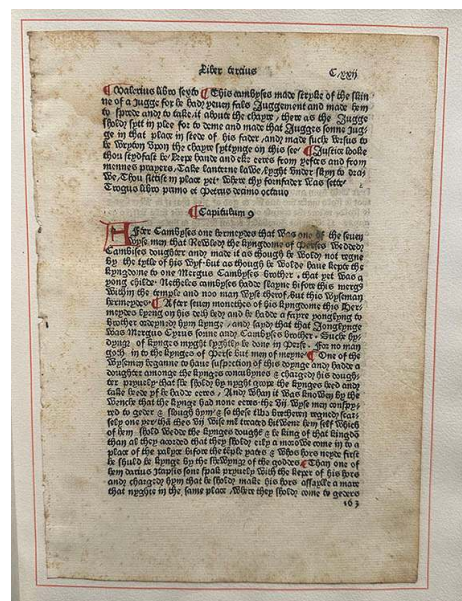 Liber tercius C.xxij
Valerius libro sexto This cambyses made stryke of the skin
ne of a Jugge for he had yeuen fals Juggement and made hem
to sprede and to take it aboute the chayre, there as the Jugge
shold sytt in plee for to deme and made that Jugges sonne Jug-
ge in that place in stede of his fader, and made suche versus to
be wryton vpon the chayre syttynge on this see Justice looke
thou stydfast be kepe hande and eke eeres from yeftes and from
mennes prayers, Take lanterne lawe, lyght vnder skyn to dra-
we, Thou sittist in place yet where thy fomfader was sette
Trogus libro primo et Petrus decimo octauo
Capitulum 9
After Cambyses one hermeydes that was one of the seuen
wyse men that Rewled the kyngdome of Perses wedded
Cambises doughter and made it as though he wold not regne
by the tytle of his wyf, but as though he wolde haue kepte the
kyngdome to one Mergus Cambyses brother, that yet was a
yong childe Netheles cambyses hadde slayne bifore this mergs
within the temple and noo man wyst therof, but this wyseman
hermeydes After seuen monethes of his kyngdome this Her-
meydes lyeng on his deth bedd and he hadde a fayre yonglyng to
brother ordeyned hym kynge, and sayd that that Jonglynge
was Mergus Cyrus sonne and Cambyses brother. Suche hy-
dynge of kynges myght lyghtly be done in Perse. For no man
goth in to the kynges of Perse but men of meyne One of the
wysemen beganne to haue suspection of this doynge and hadde a
doughter amonge the kynges concubynes & charged his dough-
ter pryuely that she shold by nyght grope the kynges heed and
take heede yf he hadde eeres, And whan it was knowen by the
wenche that the kynge had none eeres the vij wyse men conspy-
red to geder & slough hym & so these two bretheren regned scar-
sely one yere, tho theo vij wise men treated bitwene hem self which
of hem shold wedde the kynges doughter & be king of that kingdom
than al they acorded that they shold erly a morowe come in to a
place of the palys bifore the temple yates & whos hors neyed first
he shuld be kynge by the shewynge of the goddes Than one of
hem darius Itapsis sone spak pryuely with the keper of his hors
and charged hym that he shold make his hors assayle a mare
that nyght in the same place, where they shold come to geders
163